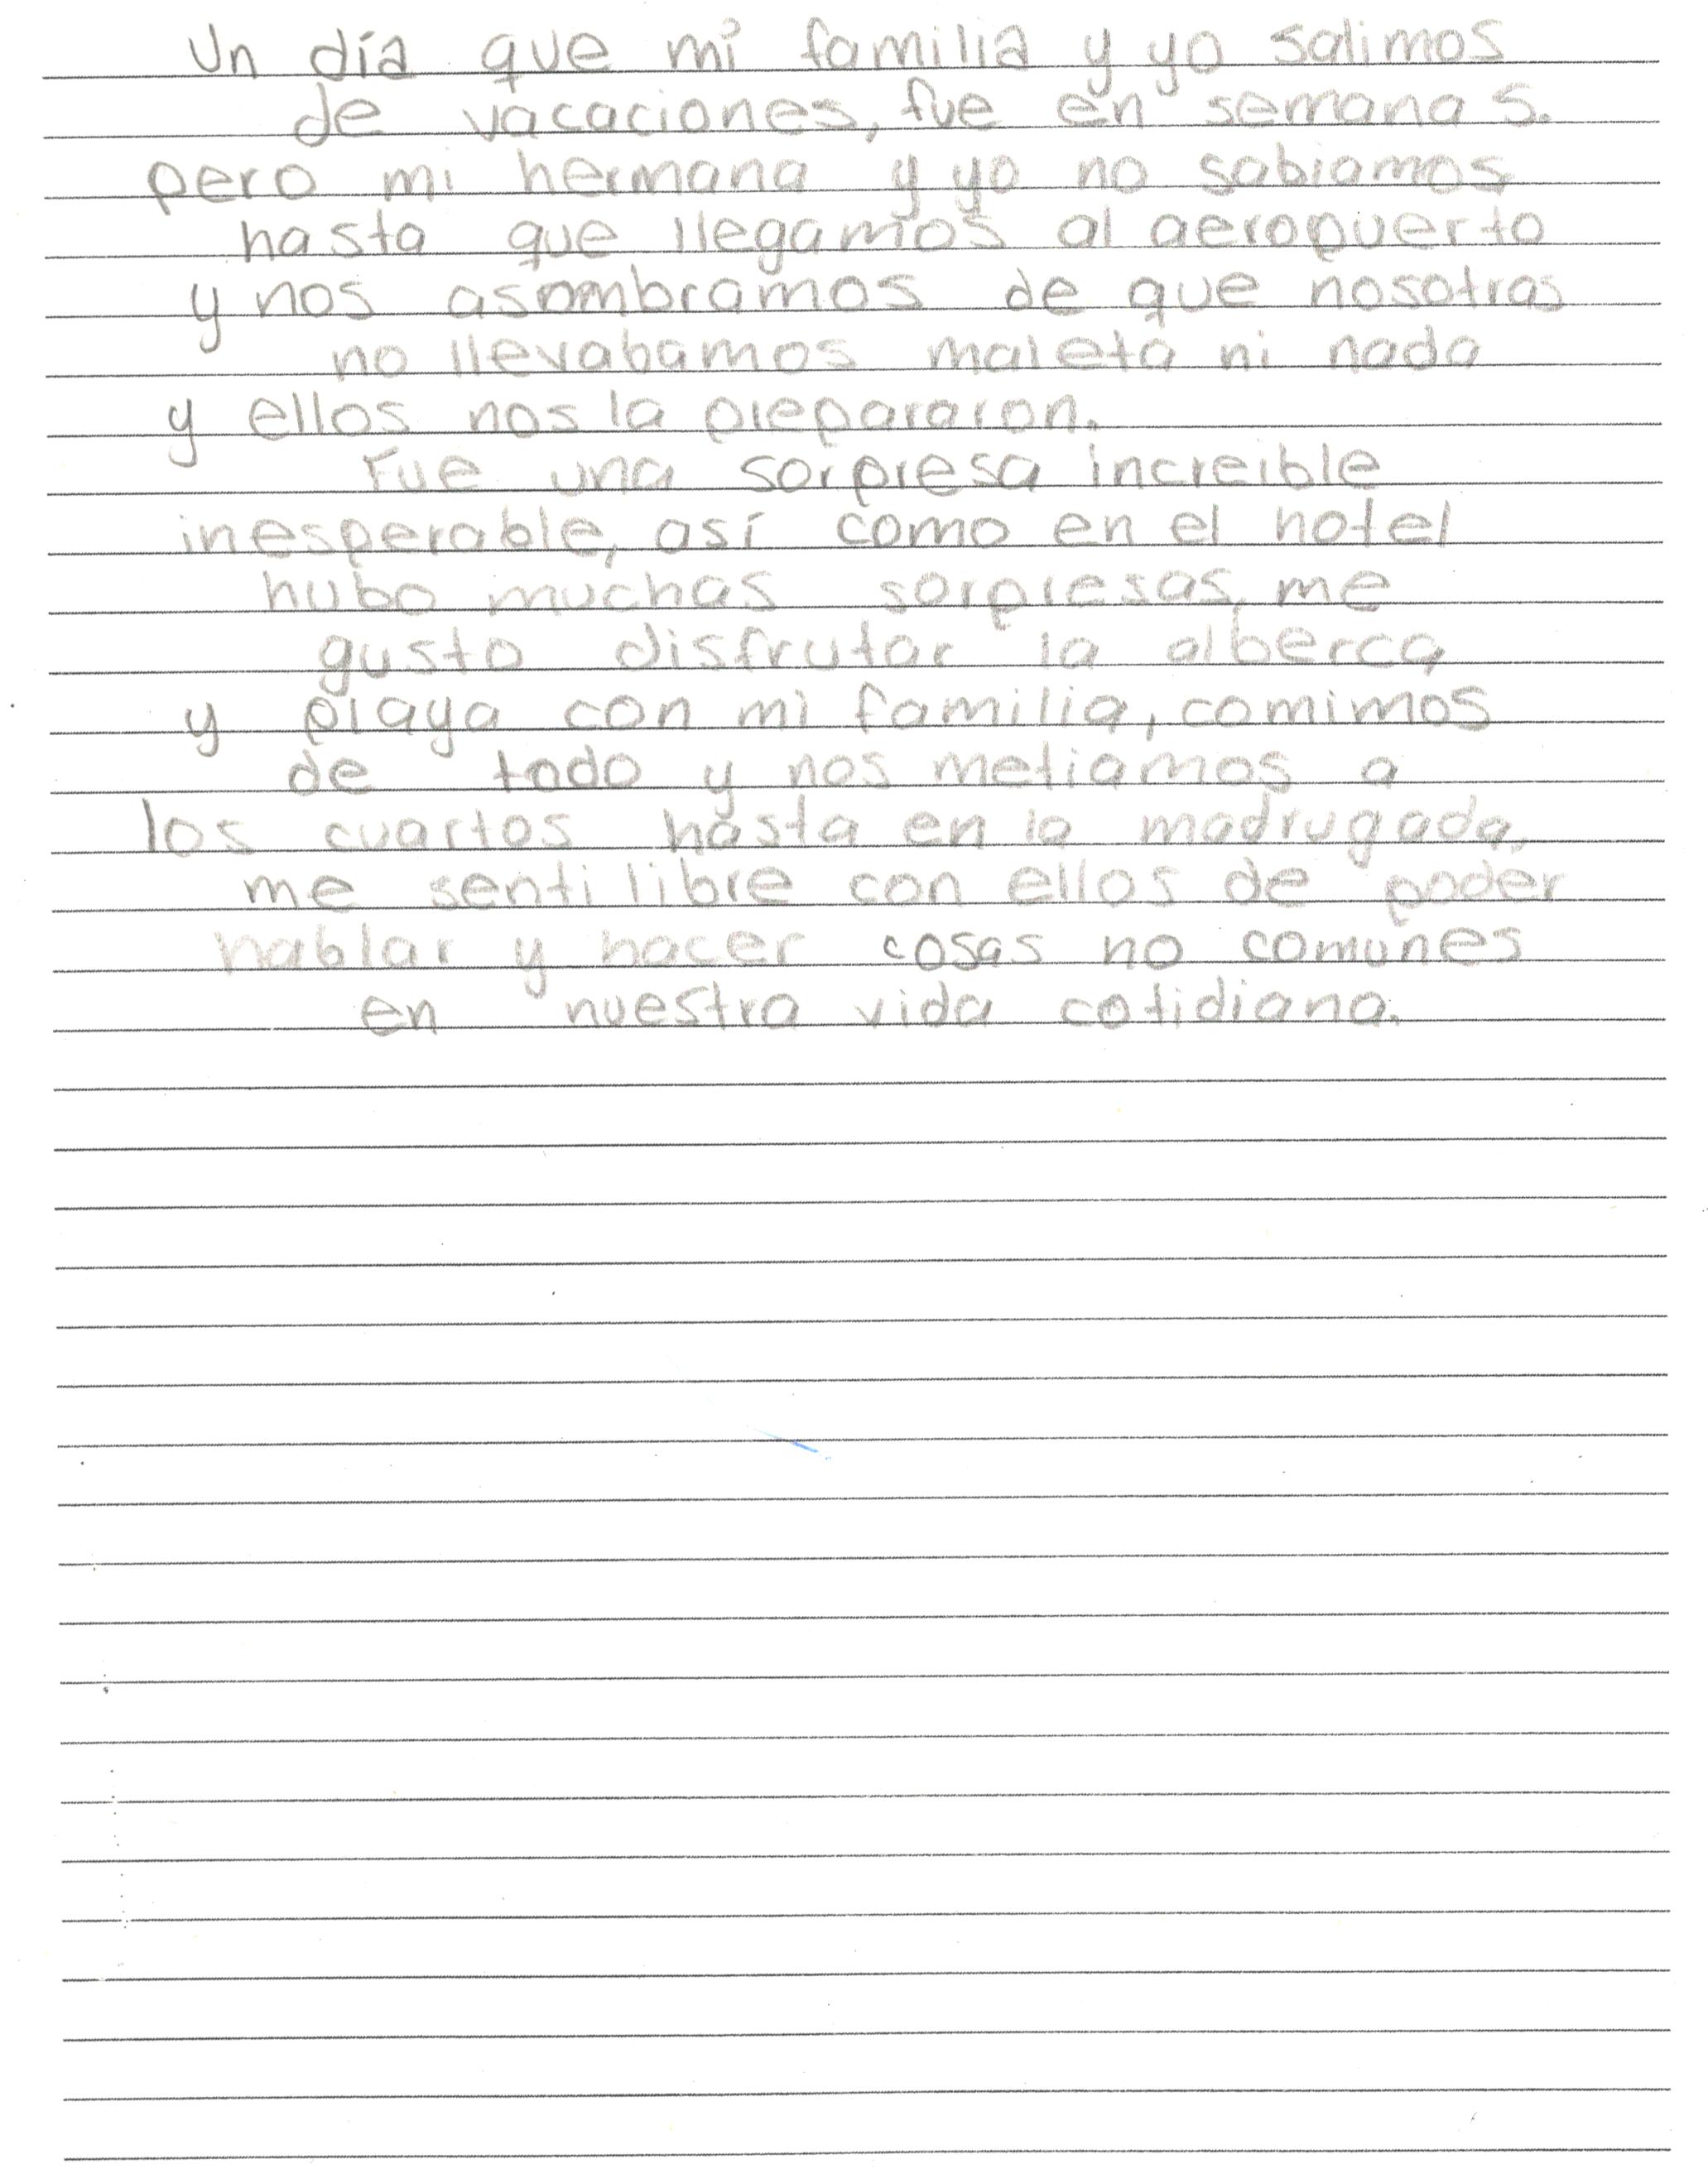 Un día que mi familia y yo salimos
de vacaciones, fue en semana S.
pero mi hermana y yo no sabiamos
hasta que llegamos al aeropuerto
y nos asombramos de que nosotras
no llevabamos maleta ni nada
y ellos nos la prepararon.
Fue una sorpresa increible
inesperable, así como en el hotel
hubo muchas sorpresas, me
gusto disfrutar la alberca
y playa con mi familia, comimos
de todo y nos metiamos a
los cuartos hasta en la madrugada,
me senti libre con ellos de poder
hablar y hacer cosas no comunes
en nuestra vida cotidiana.